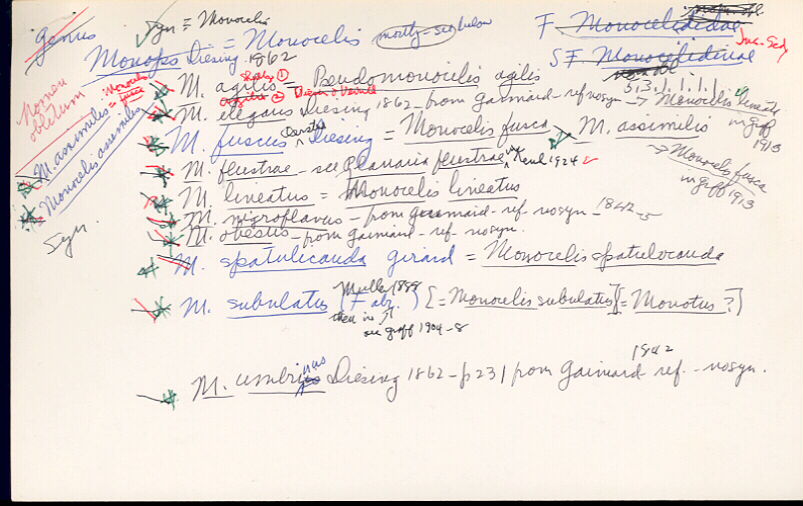 Genus Syn = Monocelis
Monops Diesing 1862 = Monocelis (mostly - see below)
F Monocelididae
Inc. Sed
S F Monocelidinae
5.3.1.1.1.1.
Nomen oblitum
M. agilis = Pseudomonocelis agilis
M. elegans Diesing 1862 - from Gaimard - ref nosyn → Monocelis lineata in Graff 1913
M. fuscus Oersted Diesing = Monocelis fusca
M. assimilis → Monocelis fusca in Graff 1913
M. assimilis = Monocelis assimilis
Syn.
M. flustrae - see Planaria flustrae in 1924
M. lineatus = Monocelis lineatus
M. nigroflavus - from Gaimard - ref - nosyn - 1842-5
M. obesus - from Gaimard - ref - nosyn.
M. spatulicauda Girard = Monocelis spatulicauda
M. subulatus (Fabr.) [= Monocelis subulatus] [= Monotus?]
then in
see Graff 1904-8
1842
M. umbrinus Diesing 1862 - p 231 from Gaimard - ref. - nosyn.